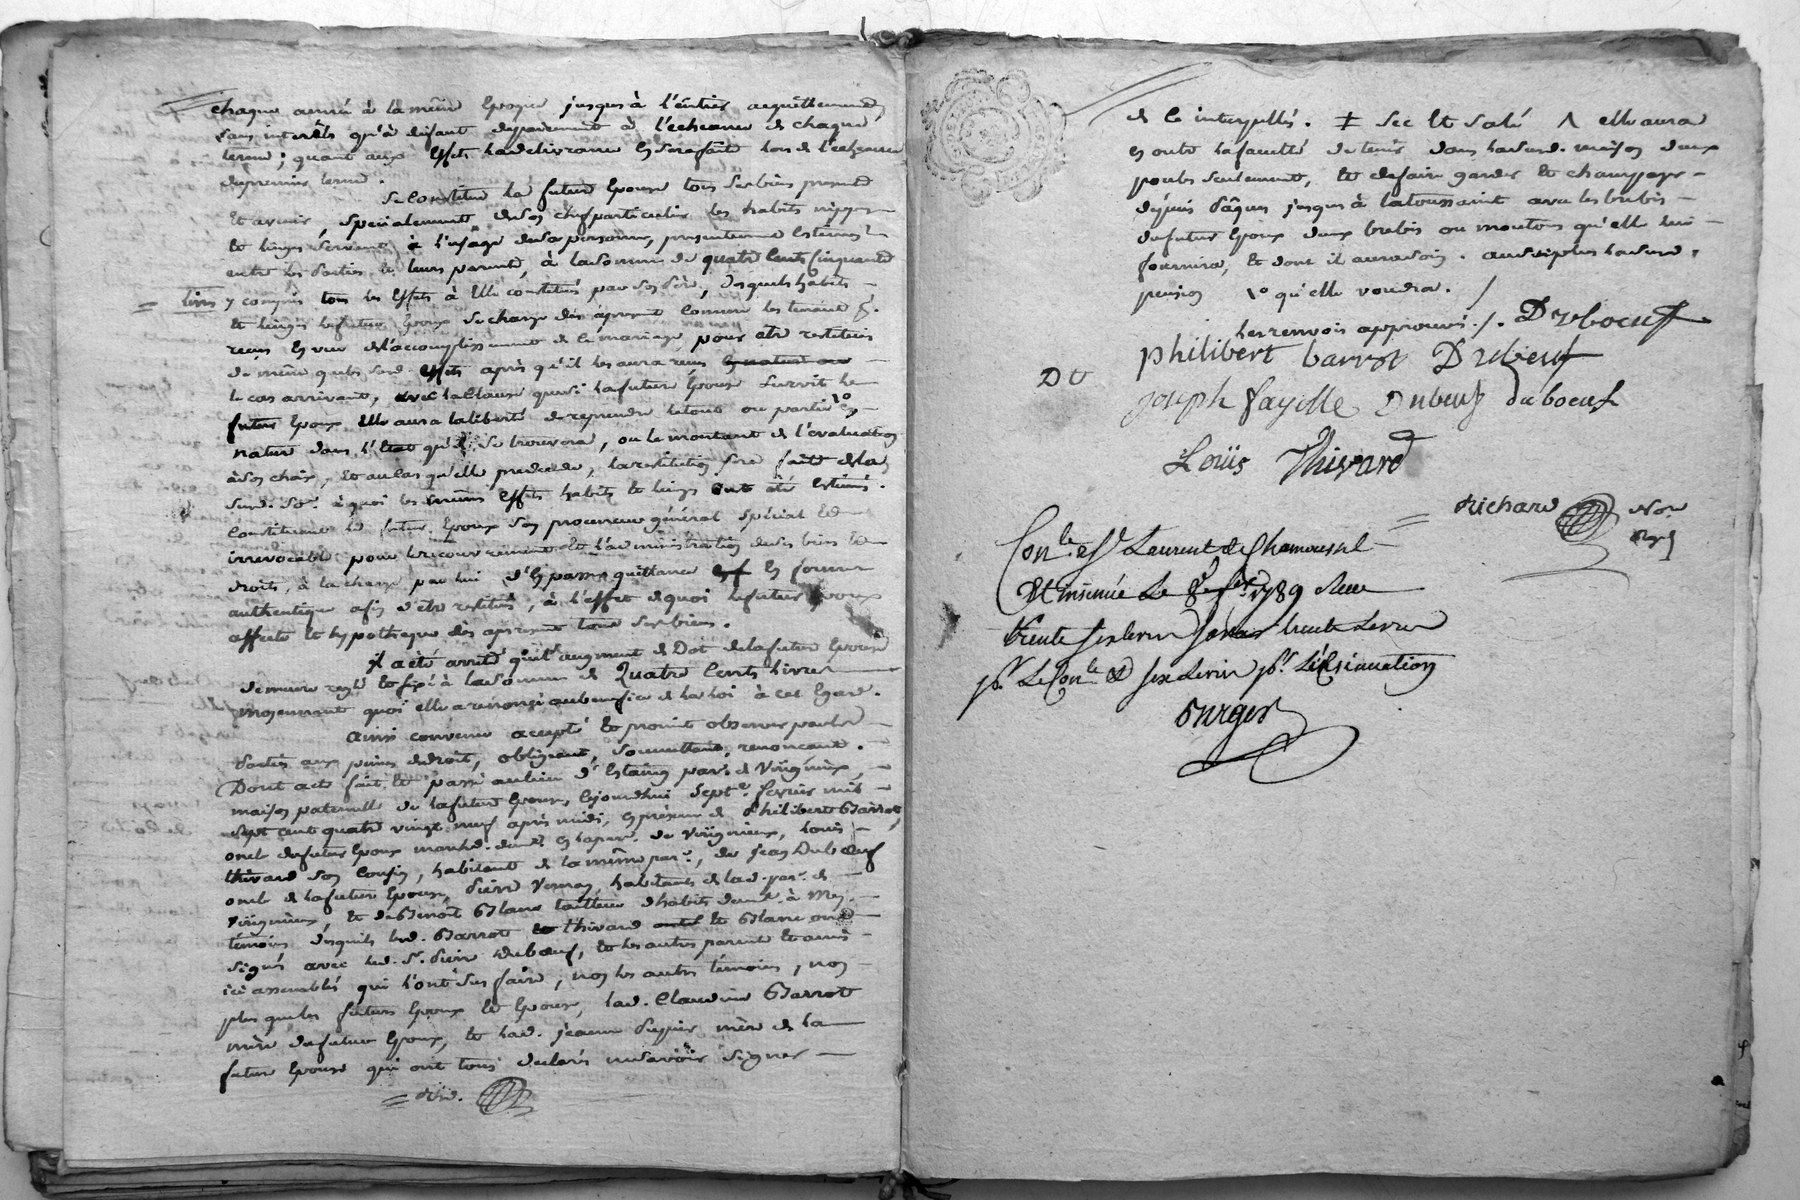 chaque année à la même Epoque jusques à l'entier acquittement
sans interêts qu'à deffaut depayement à l'echeance de chaque
terme ; quant aux Effets la delivrance En sera faite lors de l'echeance
du premier terme.
Se Constitue la future Epouse tous ses biens present
Et avenir, specialement de son chef particulier les habits nippes
Et linges servant à l'usage de sa personne, presentement Estimés
entre les parties Et leurs parents, à la somme de quatre Cent Cinquante
= livres y compris tous les Effets à Elle constitués par son père, desquels habits
Et linges le futur Epoux se charge dès àpresent comme les tenant Et
recus En vue de l'accomplissement de ce mariage pour etre restitués
de même que les susd. effets après qu'il les aura recus En nature ou
le cas arrivant, avec la Clause que si la future Epouse survit le
futur Epoux Elle aura la liberté de reprendre le tout ou partie En
nature dans l'Etat qu'il se trouvera, ou le montant de l'évaluation
à son choix, Et au cas qu'elle predecede, la restitution sera faite de la
susd. so. à quoi les mêmes Effets habits Et linges ont été Estimés.
Constituant led. futur Epoux son procureur général special Et
irrevocable pour le recouvrement Et l'administration de ses biens Et
droits, à la charge par lui d'En passer quittance En forme
authentique afin d'etre restitués, à l'effet de quoi le futur Epoux
affecte Et hypotheque dès àpresent tous ses biens.
Il a été arreté que l'augment de Dot de la future Epouse
demeure reglé Et fixé à la somme de Quatre Cents livres
moyennant quoi elle a renoncé au benefice de la loi à cet Egard.
Ainsi convenu accepté Et promit observer par les
Parties aux peines de droit, obligeant, soumettant, renoncant.
Dont acte fait Et passé au lieu d'Estaing par. de Virigneux,
maison paternelle de la future Epouse, cejourdhui sept.e fevrier mil
sept cent quatre vingt neuf après midi, en présence de Philibert Barrot,
oncle du futur Epoux march. demt. En la par. de Virigneux, louis
thivard son Cousin, habitant de la même par., de jean Duboeuf
oncle de la future Epouse, Pierre Vernay, habitants de lad. par. de
Virigneux, Et de Benoit Blanc tailleur d'habits demt. à Mey.
témoins desquels led. Barrot Et thivard Et Blanc ont
signé avec led. Sr. Pierre Duboeuf, Et les autres parents Et amis
ici assemblés qui l'ont sus faire, non les autres témoins, non
plus que les futurs Epoux Et Epouse, lad. Claudine Barrot
mère du futur Epoux, Et lad. jeanne Dupuy mère de la
future Epouse qui ont tous declarés ne savoir signer
de ce interpellés. ‡ sec Et salé Λ elle aura
en outre la faculté de tenir dans lad. maison deux
poules seulement, Et de faire garder Et champayer
depuis Pâques jusques à la toussaint avec les brebis
du futur Epoux deux brebis ou moutons qu'elle lui
fournira, Et dont il aura soin. aussi plus lad.
pension 1° qu'elle voudra. /
les renvois approuvés. /. Duboeuf
Philibert barrot Duboeuf
DU
joseph fayolle Dubeuf duboeuf
Loüis Thivard
= Richard Not
Royal
Con.le à St Laurent de Chamousset
Et insinué Le 8e fer. 1789 Receu
trente six livres savoir trente Livres
pr. Le Con.le Et six Livres pr. L'insinuation
Burger